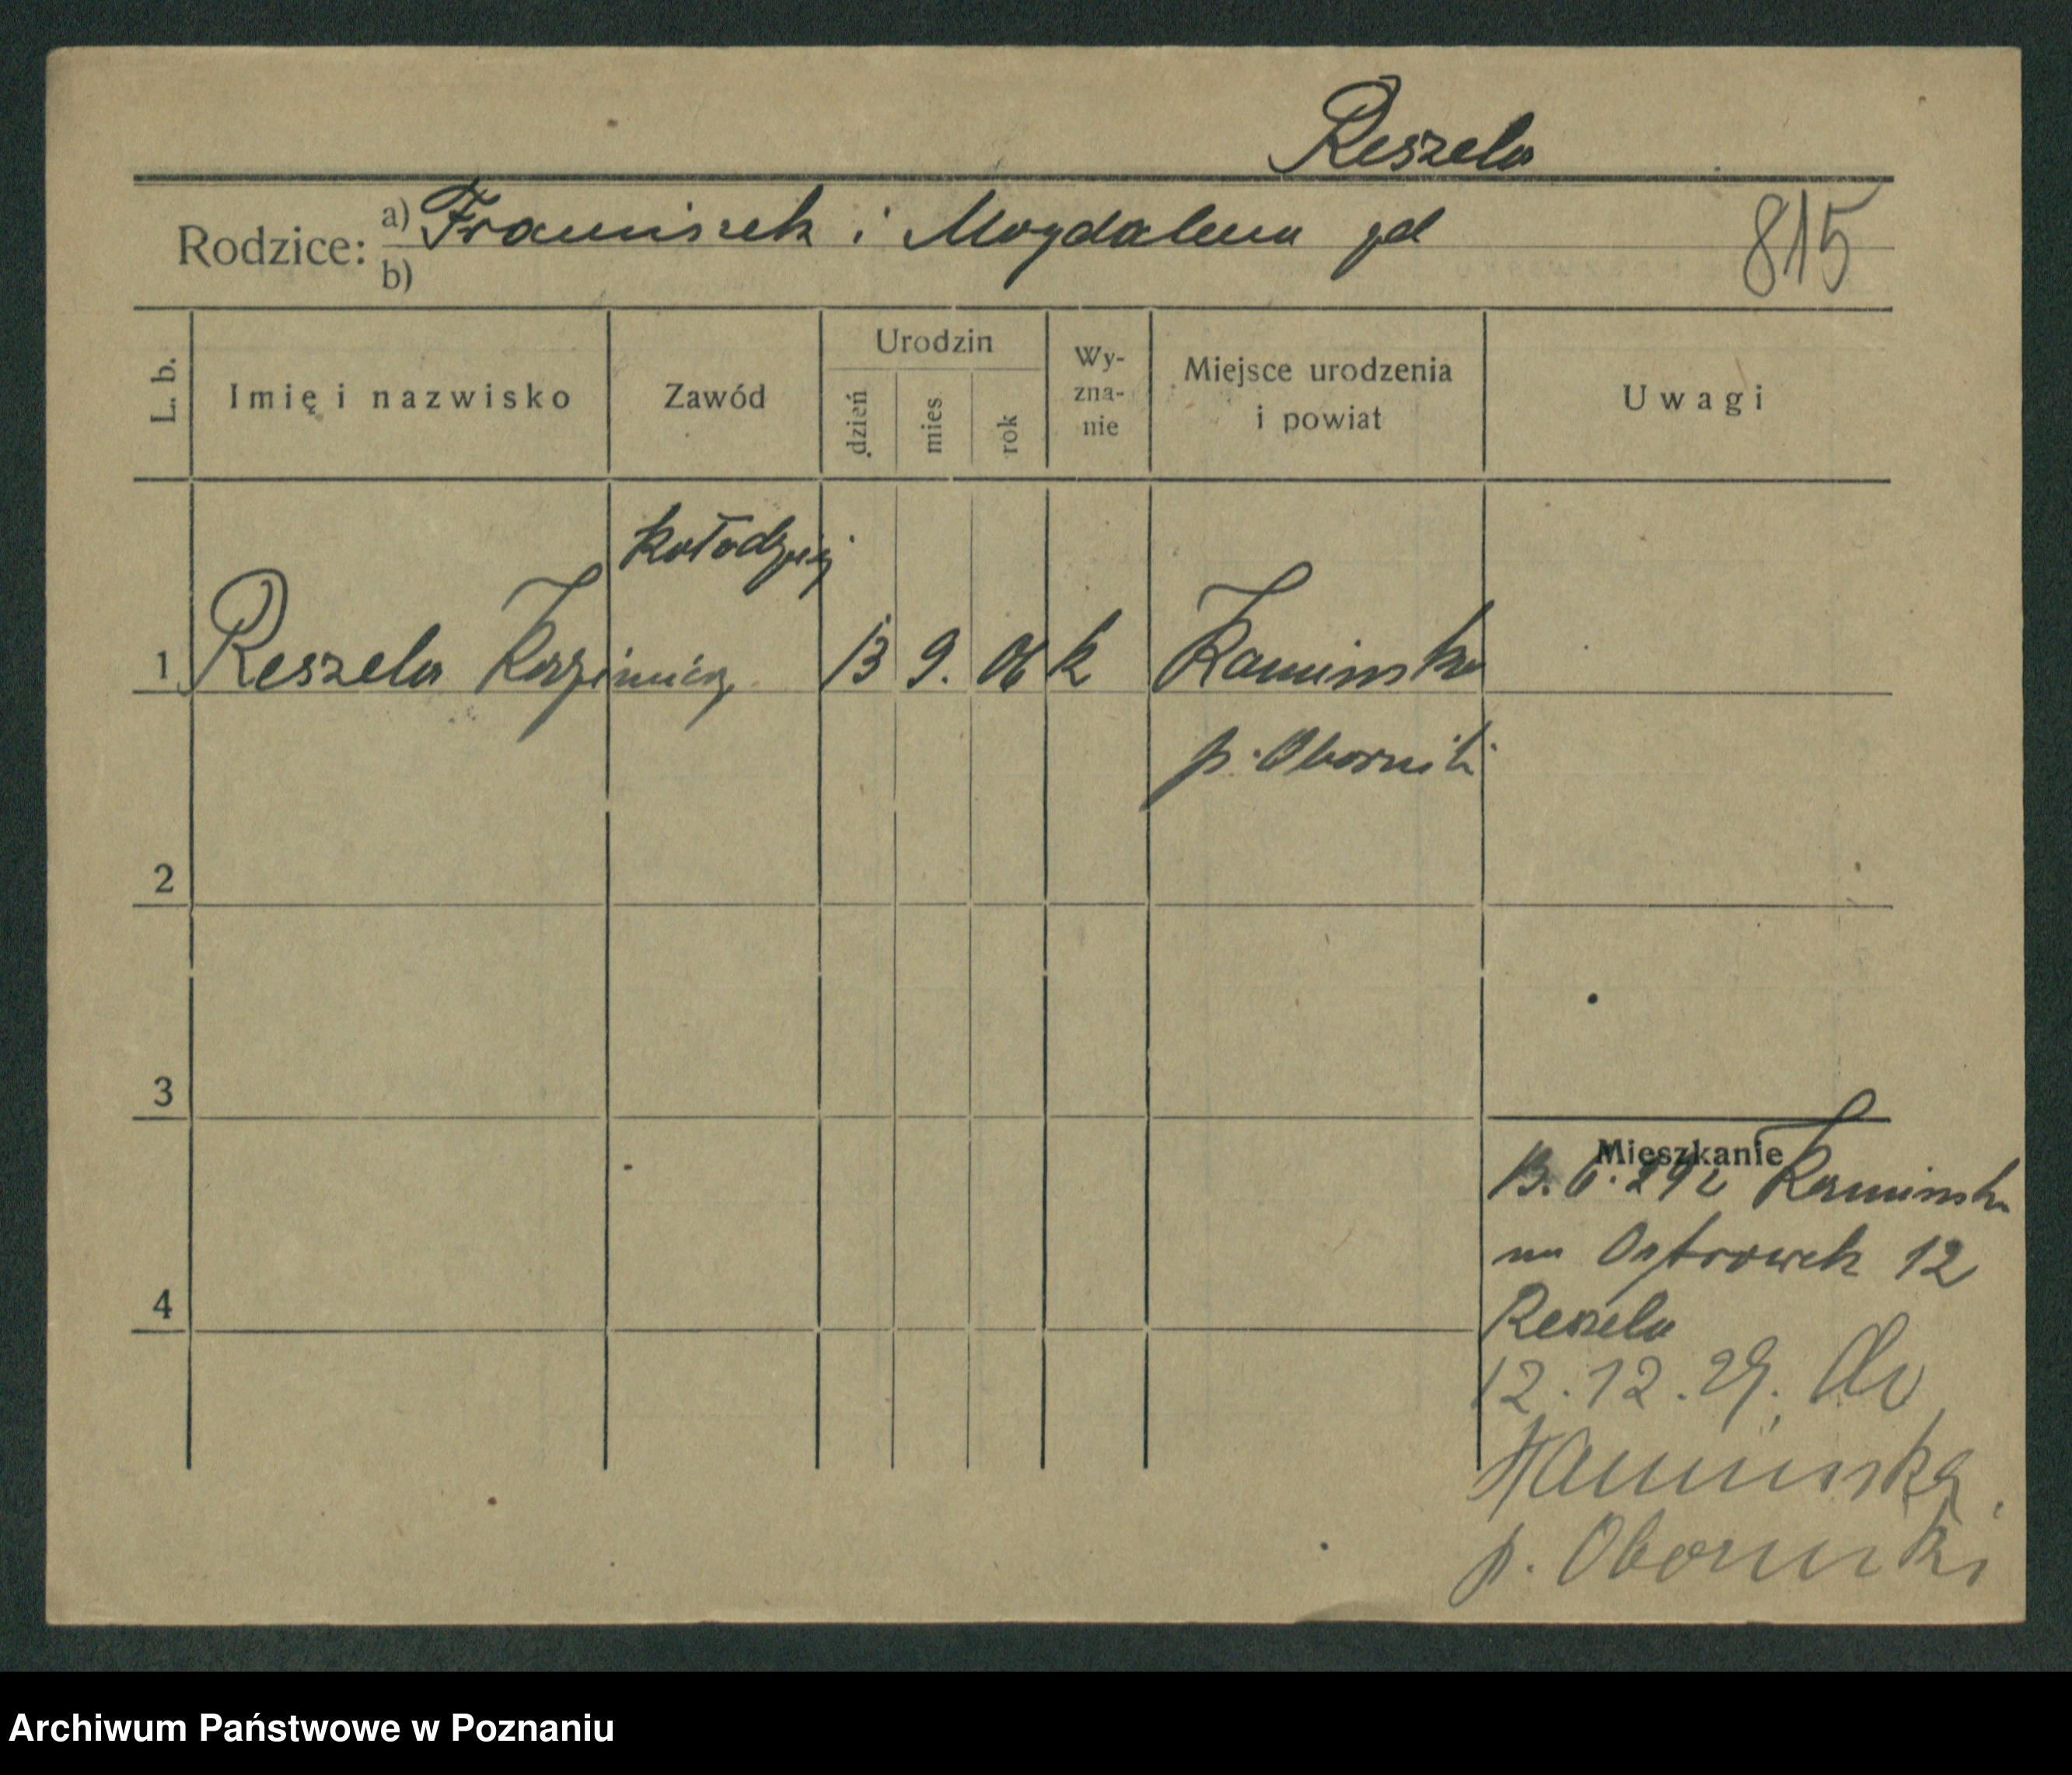 Reszela
Rodzice: a) Franciszek i Magdalena jd 815
b)
L. b. Imię i nazwisko Zawód Urodzin dzień mies. rok Wy-zna-nie Miejsce urodzenia i powiat Uwagi
kołodziej
1 Reszela Kazimierz 13 9. 06 k Kaminsko
p. Oborniki
2
3
Mieszkanie
13. 6. 292 Kaminsko
na Ostrowek 12
4
Reszela
12.12.29. do
Kaminska.
p. Oborniki
Archiwum Państwowe w Poznaniu